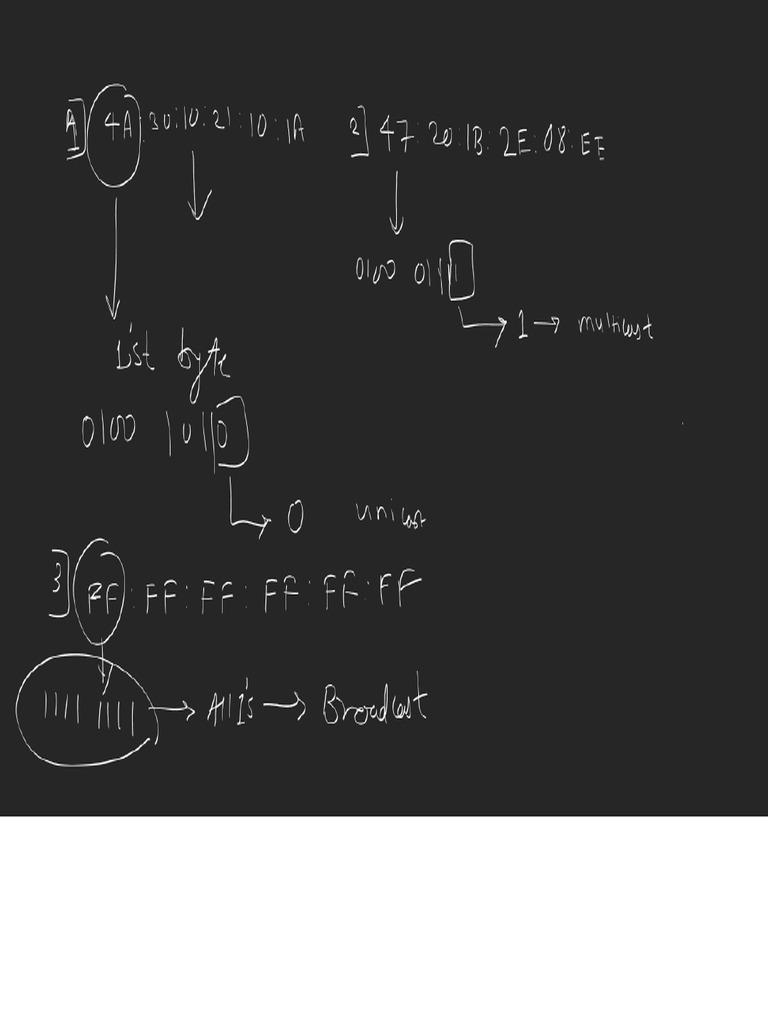 1] 4A:30:10:21:10:1A
2] 47:20:1B:2E:08:EE
0100 0111
1 → multicast
1'st byte
0100 1010
0 unicast
3] FF:FF:FF:FF:FF:FF
1111 1111 → All 1's → Broadcast